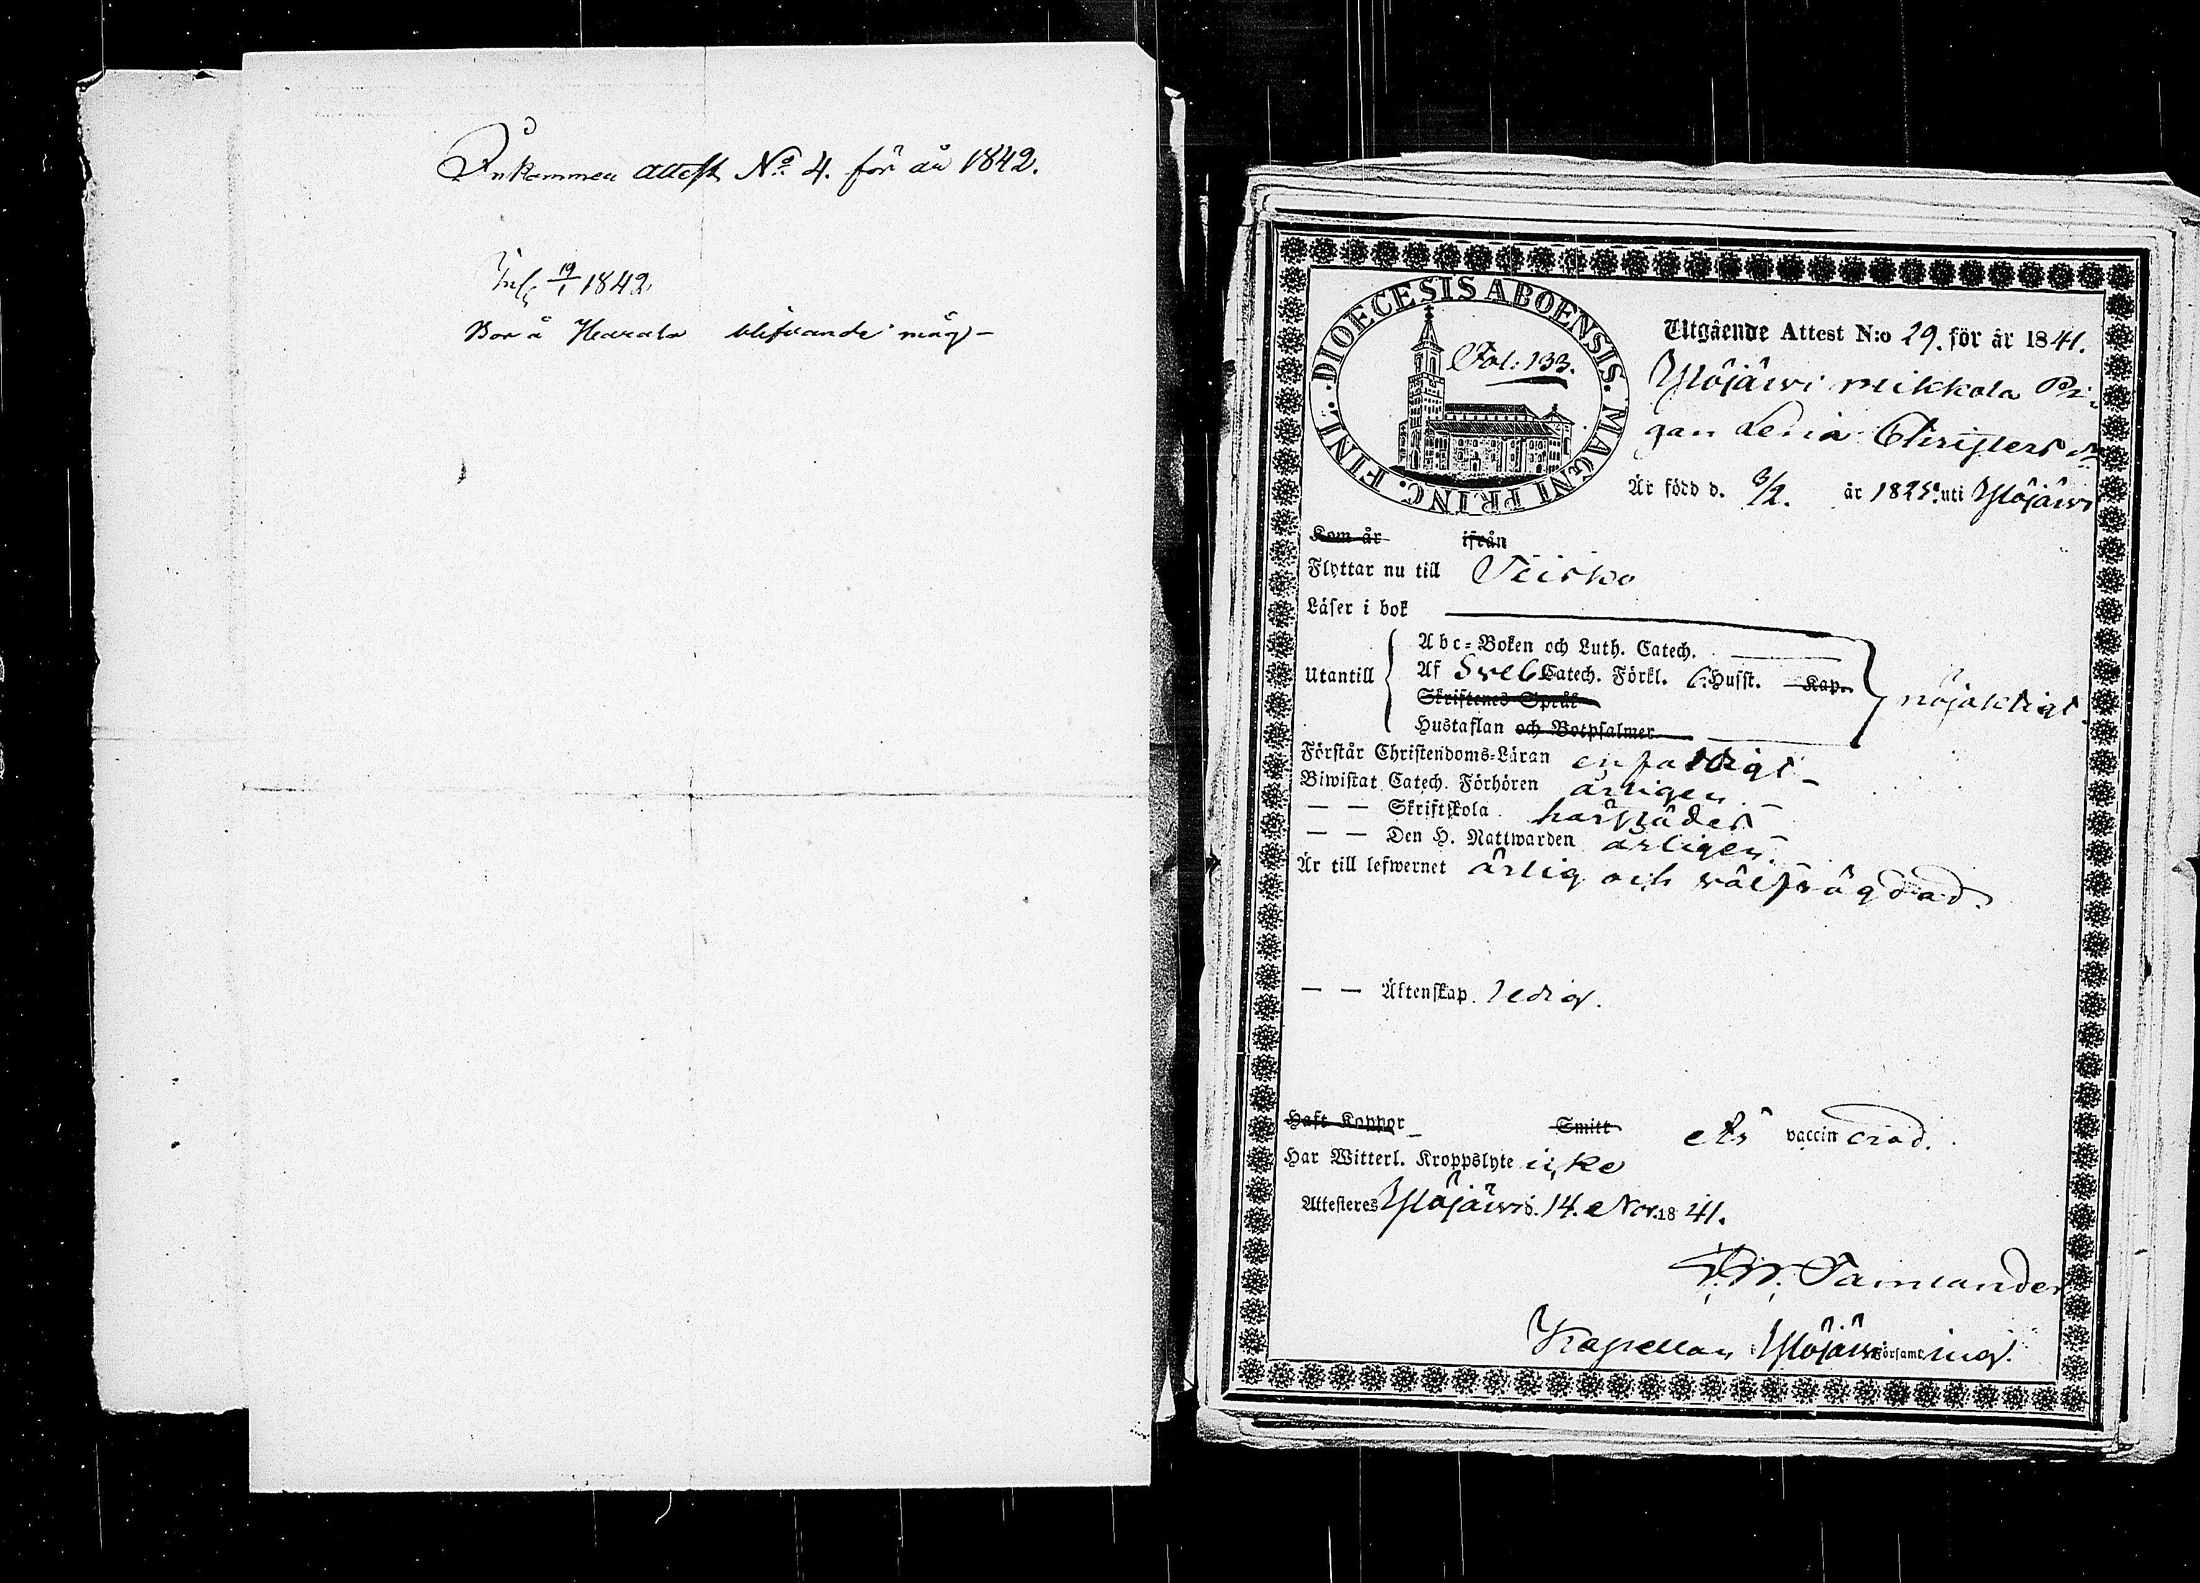 Inkommen attest No 4. för år 1842.
Inl. 19/1 1842
Bor å blifvande måg -
DIOECESIS ABOENSIS. MAGNI PRINC. FINL.
Fol: 133.
Utgående Attest N:o 29. för år 1841.
Ylöjärvi Mikkola Pi-
gan Lena Christers dr
Är född d. /2. år 182 uti Ylöjärvi
Kom år ifrån
Flyttar nu till Teisko
Läser i bok
Utantill
Abc-Boken och Luth. Catech.
Af Sveb Catech. Förkl. 6. Husst. Kap.
Skriftenes Språk
Hustaflan och Botpsalmer
nöjaktigt.
Förstår Christendoms-Läran enfaldigt -
Biwistat Catech. Förhören årligen -
— — Skriftskola härstädes -
— — Den H. Nattwarden årligen.
Är till lefwernet ärlig och välfrägdad.
— — Äktenskap ledig.
Haft Koppor Smitt Är vaccinerad.
Har Witterl. Kroppslyte icke
Attesteres Ylöjärvi d. 14. Nov. 1841.
Tamlander
Kapellan i Ylöjärvi Församling.